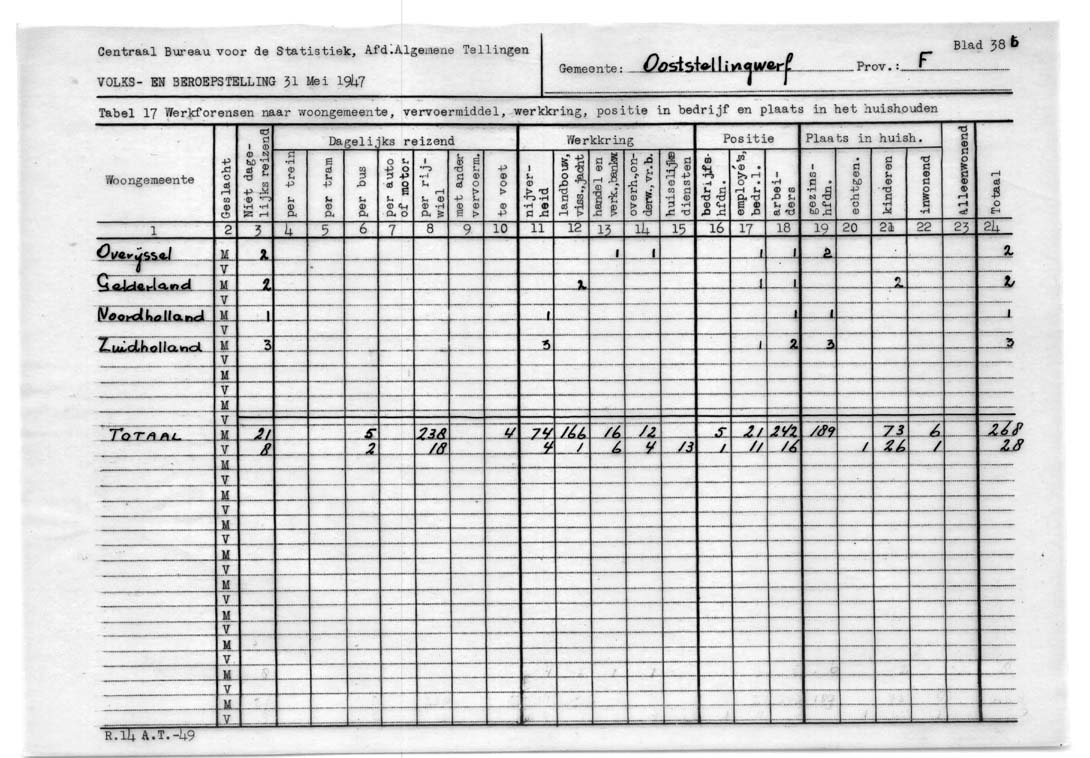 Centraal Bureau voor de Statistiek, Afd.Algemene Tellingen
VOLKS- EN BEROEPSTELLING 31 Mei 1947
Gemeente: Ooststellingwerf Prov.: F
Blad 38 b
Tabel 17 Werkforensen naar woongemeente, vervoermiddel, werkkring, positie in bedrijf en plaats in het huishouden
Woongemeente Geslacht Niet dage- lijks reizend Dagelijks reizend Werkkring Positie Plaats in huish. Alleenwonend Totaal
per trein per tram per bus per auto of motor per rij- wiel met ander vervoerm. te voet nijver- heid landbouw, viss.,jacht handel en verk.,bankw. overh.,on- derw,vr.b. huiselijke diensten bedrijfs- hfdn. employé's, bedr.l. arbei- ders gezins- hfdn. echtgen. kinderen inwonend
1 2 3 4 5 6 7 8 9 10 11 12 13 14 15 16 17 18 19 20 21 22 23 24
Overijssel M 2 1 1 1 1 2 2
V
Gelderland M 2 2 1 1 2 2
V
Noordholland M 1 1 1 1 1
V
Zuidholland M 3 3 1 2 3 3
V
M
V
M
V
TOTAAL M 21 5 238 4 74 166 16 12 5 21 242 189 73 6 268
V 8 2 18 4 1 6 4 13 1 11 16 1 26 1 28
M
V
M
V
M
V
M
V
M
V
M
V
M
V
M
V
M
V
R.14 A.T.-49